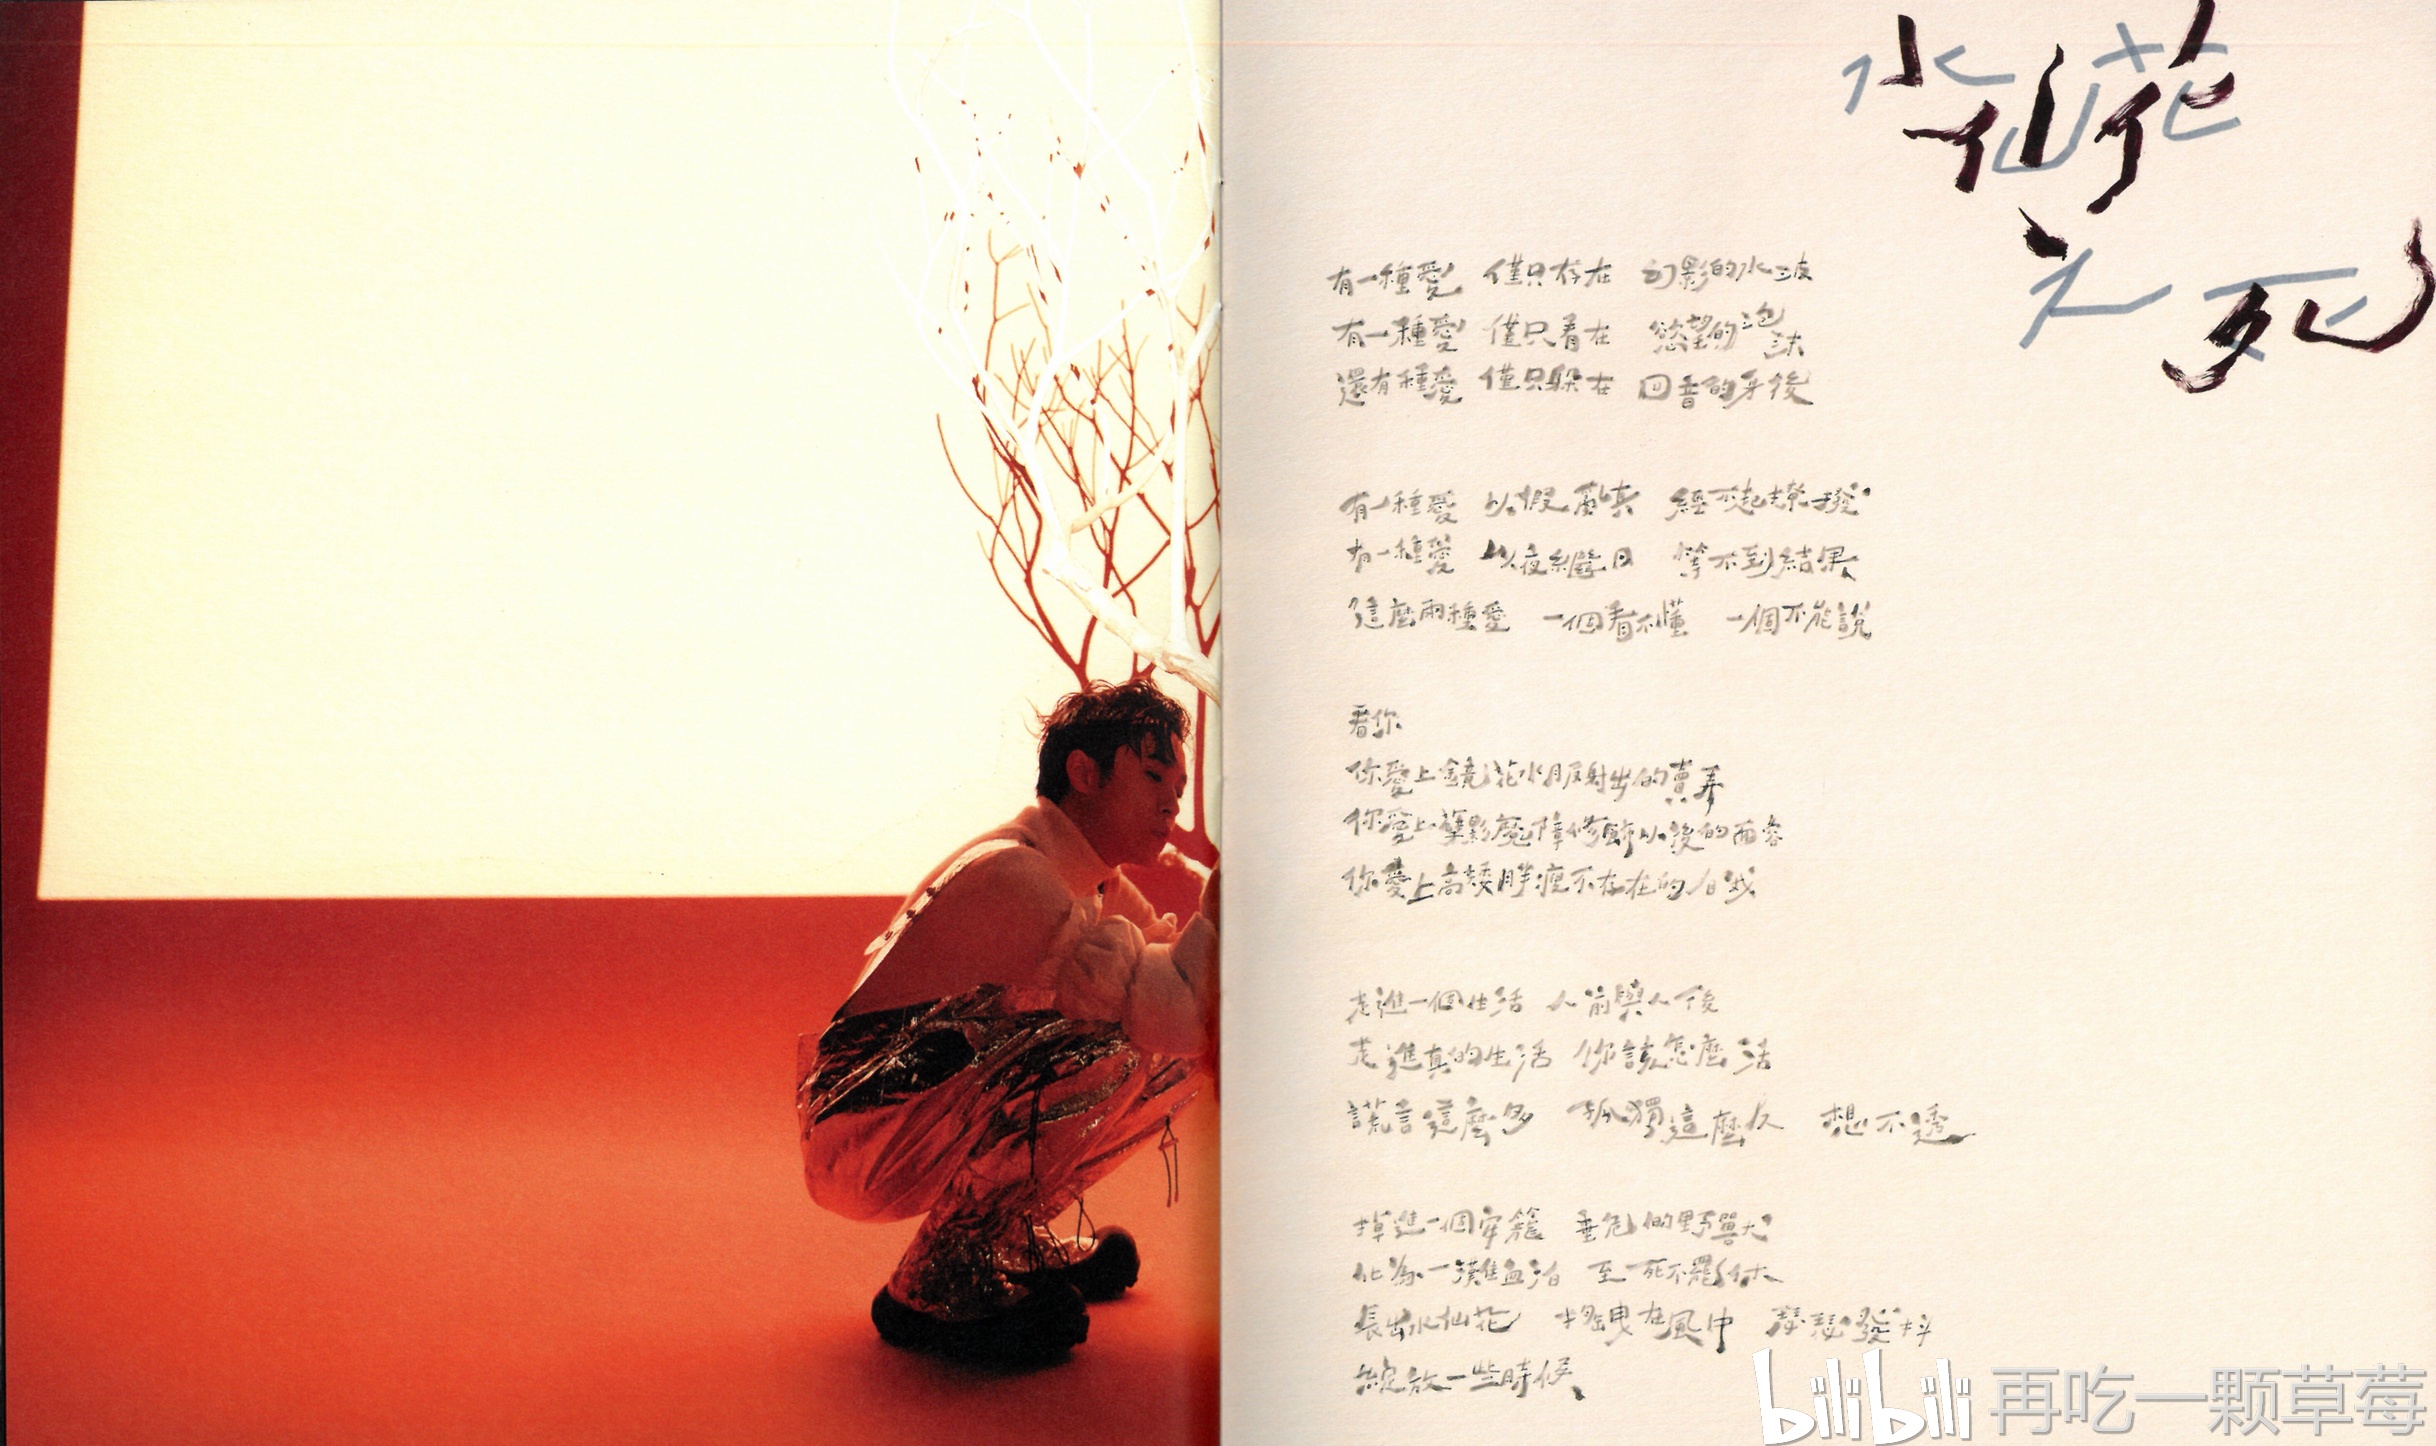 水仙花
之死
有一種愛 僅只存在 幻影的水波
有一種愛 僅只看在 慾望的泡沫
還有種愛 僅只躲在 回音的身後
有一種愛 以假亂真 經不起撩撥
有一種愛 以夜繼日 等不到結果
這麼兩種愛 一個看不懂 一個不能說
看你
你愛上鏡花水月反射出的賣弄
你愛上孽影魔障修飾以後的面容
你愛上高矮胖瘦不存在的自戒
走進一個生活 人前與人後
走進真的生活 你該怎麼活
謊言這麼多 孤獨這麼久 想不透
掉進一個牢籠 垂危的野獸
化為一灘血泊 至死不罷休
長出水仙花 搖曳在風中 瑟瑟發抖
綻放一些時候
bilibili 再吃一颗草莓